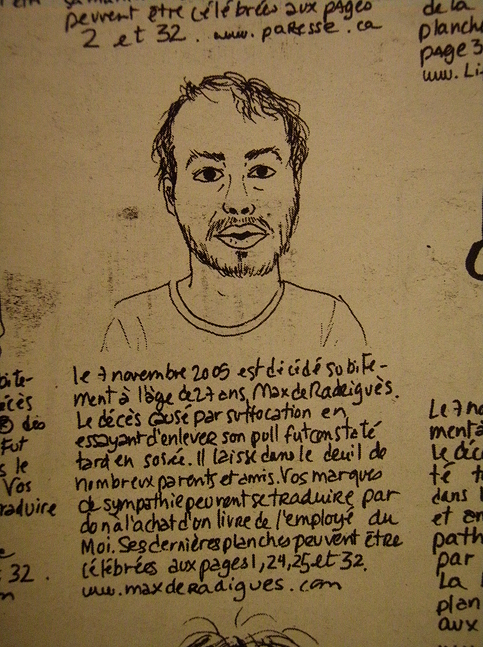 peuvent être célébrées aux pages
2 et 32. www. paresse. ca
de la
planche
page 3
www. Li
le 7 novembre 2005 est décidé subite-
ment à l'âge de 27 ans, Max de Radiguès.
Le décès causé par suffocation en
essayant d'enlever son pull fut constaté
tard en soirée. Il laisse dans le deuil de
nombreux parents et amis. Vos marques
de sympathie peuvent se traduire par
don à l'achat d'un livre de l'employé du
Moi. Ses dernières planches peuvent être
célébrées aux pages 1, 24, 25 et 32.
www. maxderadigues. com
bite-
écès
des
Fut
s le
Vos
raduire
e
32.
m
Le 7 no
ment à
Le déc
té t
dans l
et am
path
par
La
plan
aux